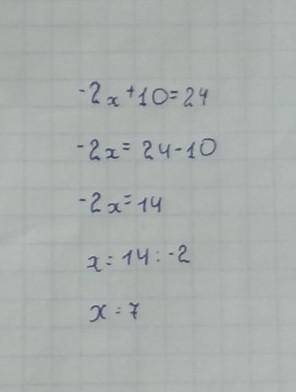 -2x+10=24
-2x=24-10
-2x=14
x=14:-2
x=7